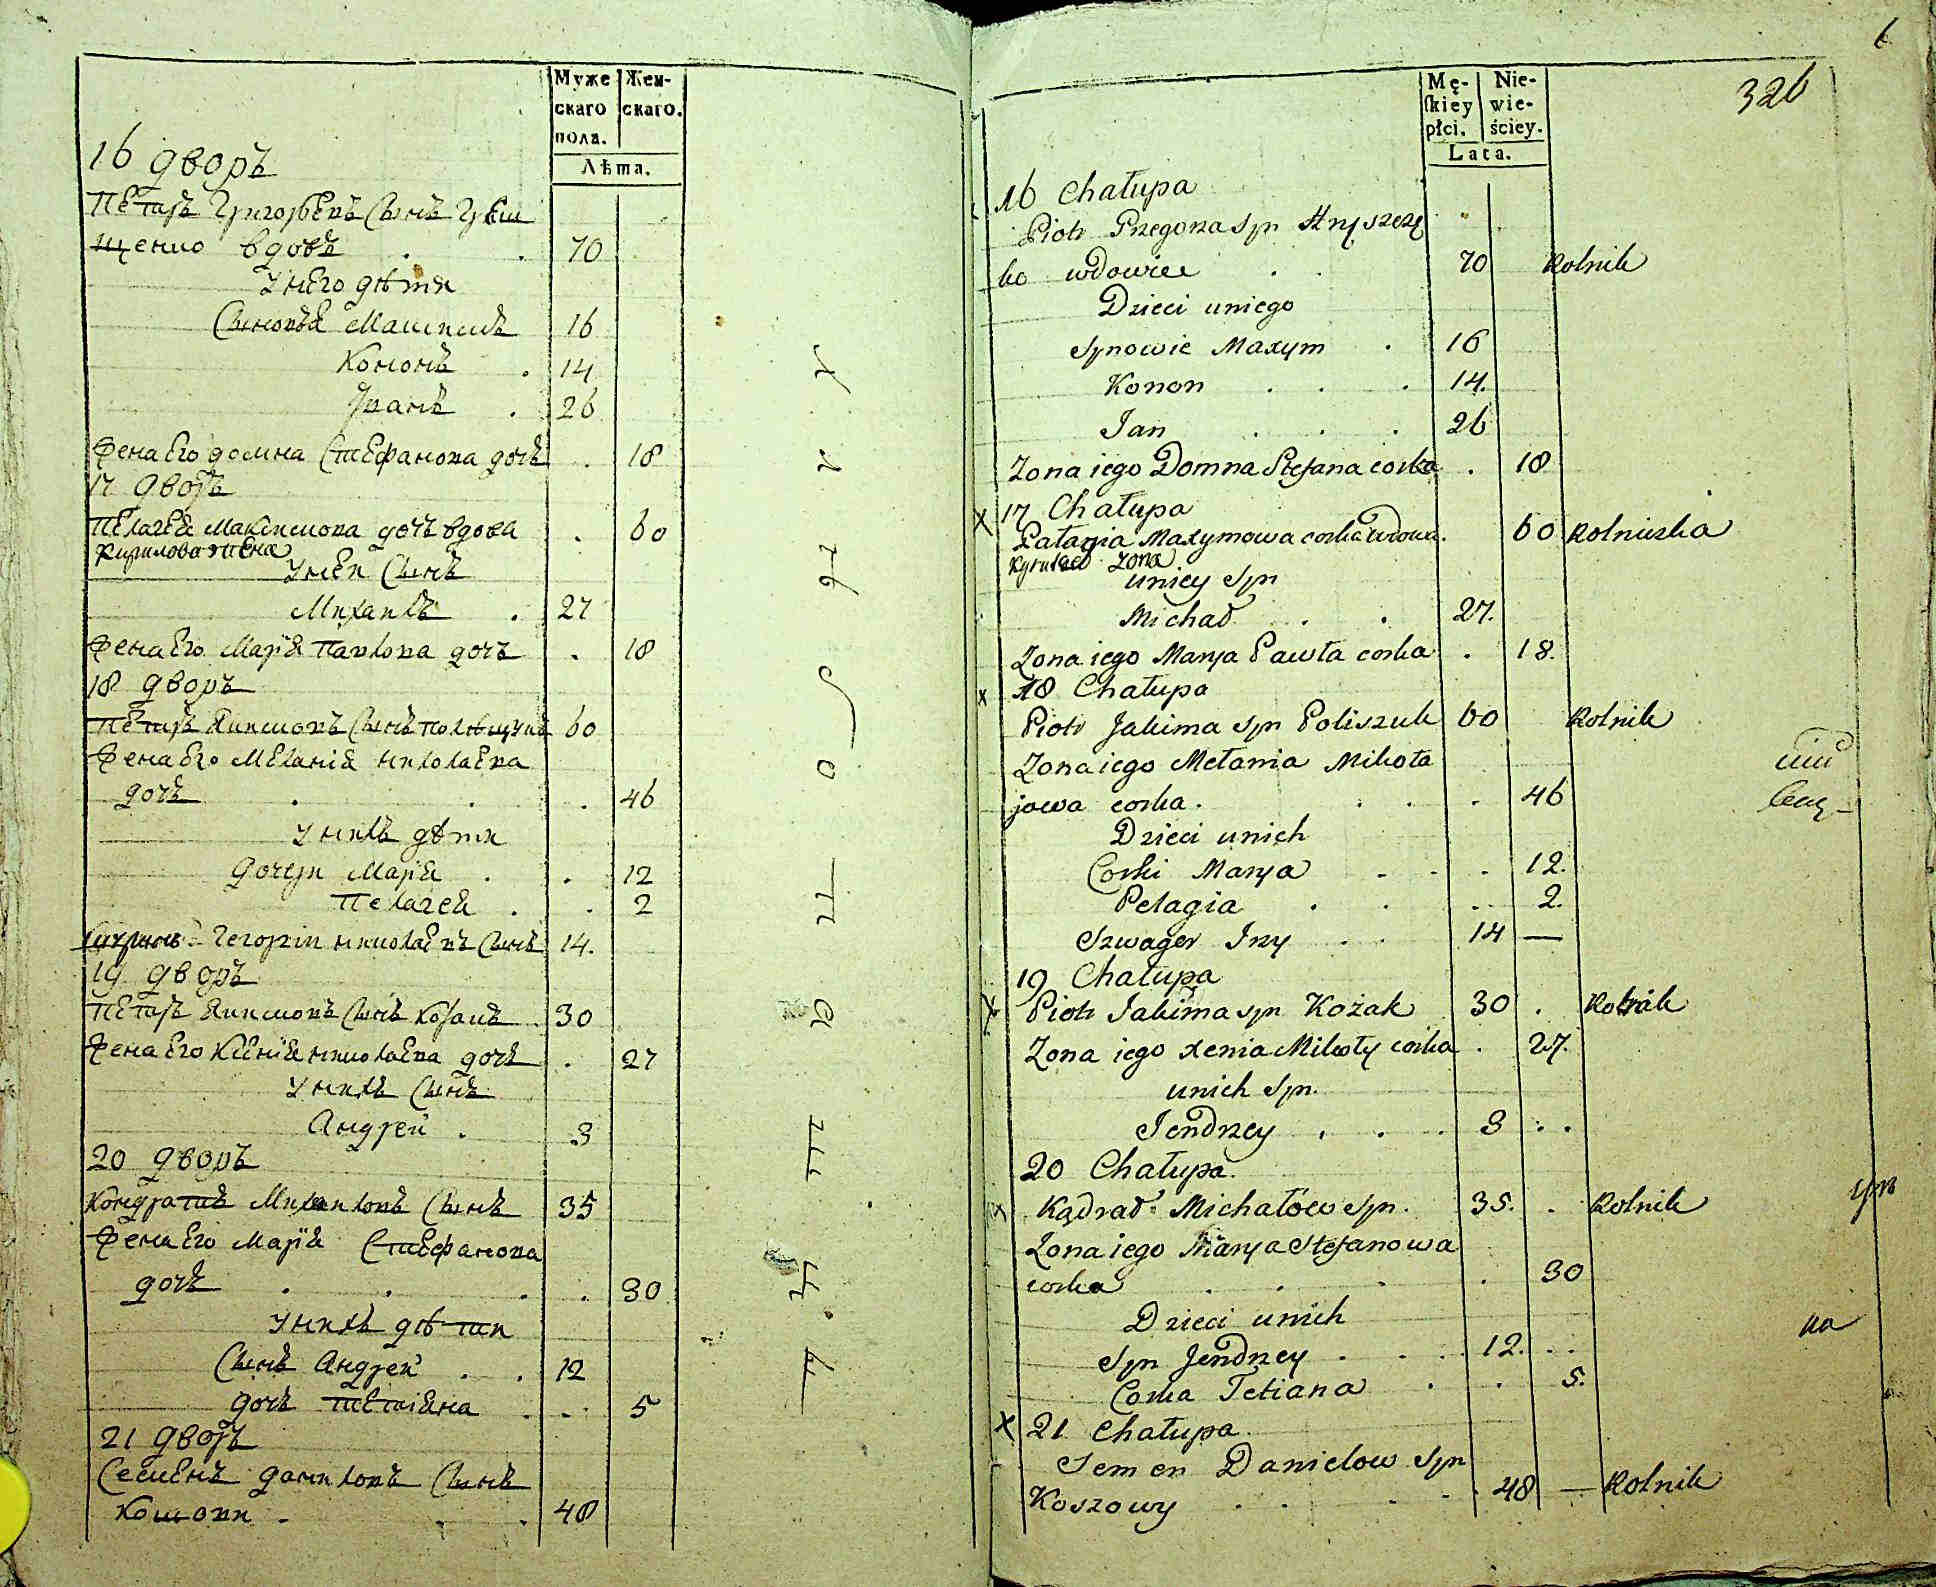 Муже
скаго
пола.
Жен-
скаго.
Лѣта.
16 дворъ
Петръ Григорьевъ сынъ Грищ
щенко вдовъ . . 70
У него дѣти
Сыновья Максимъ 16
Кононъ . 14
Иванъ . 26
Жена его Домна Стефанова дочь . 18
17 дворъ
Пелагея Максимова дочь вдова . 60
Кирилова жена
У ней сынъ
Михаилъ . 27
Жена его Марія Павлова дочь . 18
18 дворъ
Петръ Якимовъ сынъ Полѣщукъ 60
Жена его Меланія Николаева
дочь . . . 46
У нихъ дѣти
Дочери Марія . . 12
Пелагея . . 2
Шуринъ Георгій Николаевъ сынъ 14.
19 дворъ
Петръ Якимовъ сынъ Козакъ 30
Жена его Ксенія Николаева дочь . 27
У нихъ сынъ
Андрей . 3
20 дворъ
Кондратъ Михайловъ сынъ 35
Жена его Марія Стефанова
дочь . . . . 30
У нихъ дѣти
Сынъ Андрей . . 12
дочь Тетіяна . . 5
21 дворъ
Семенъ Даниловъ сынъ
Кошови . . . 48
6
326
Mę-
skiey
płci.
Nie-
wie-
ściey.
Lata.
16 Chałupa
Piotr Grzegorza syn Hryszcze
ko wdowiec . . 70 Rolnik
Dzieci uniego
Synowie Maxym . 16
Konon . . . 14.
Jan . . . 26
Zona iego Domna Stefana corka . 18
x 17 Chałupa
Pałagia Maxymowa corka wdowa. 60 Rolniczka
Zona
uniey Syn
Michał . . 27.
Zona iego Marya Pawła corka . 18.
x 18 Chałupa
Piotr Jakima syn Poliszuk 60 Rolnik
Zona iego Mełania Mikoła
jowa corka. . . . 46
Dzieci unich
Corki Marya . . . 12.
Pelagia . . . 2.
Szwager Jrzy . . 14 —
19 Chałupa
x Piotr Jakima syn Kozak 30 . Rolnik
Zona iego Xenia Mikoły corka . 27.
unich Syn.
Jendrzey . . . 3 . .
20 Chałupa.
x Kądrad Michałów syn. 35. . Rolnik
Zona iego Marya Stefanowa
corka . . . . 30
Dzieci unich
Syn Jendrzey . . . 12. . .
Corka Tetiana . . 5.
x 21 Chałupa.
Semen Danielow Syn
Koszowy . . . . 48 — Rolnik